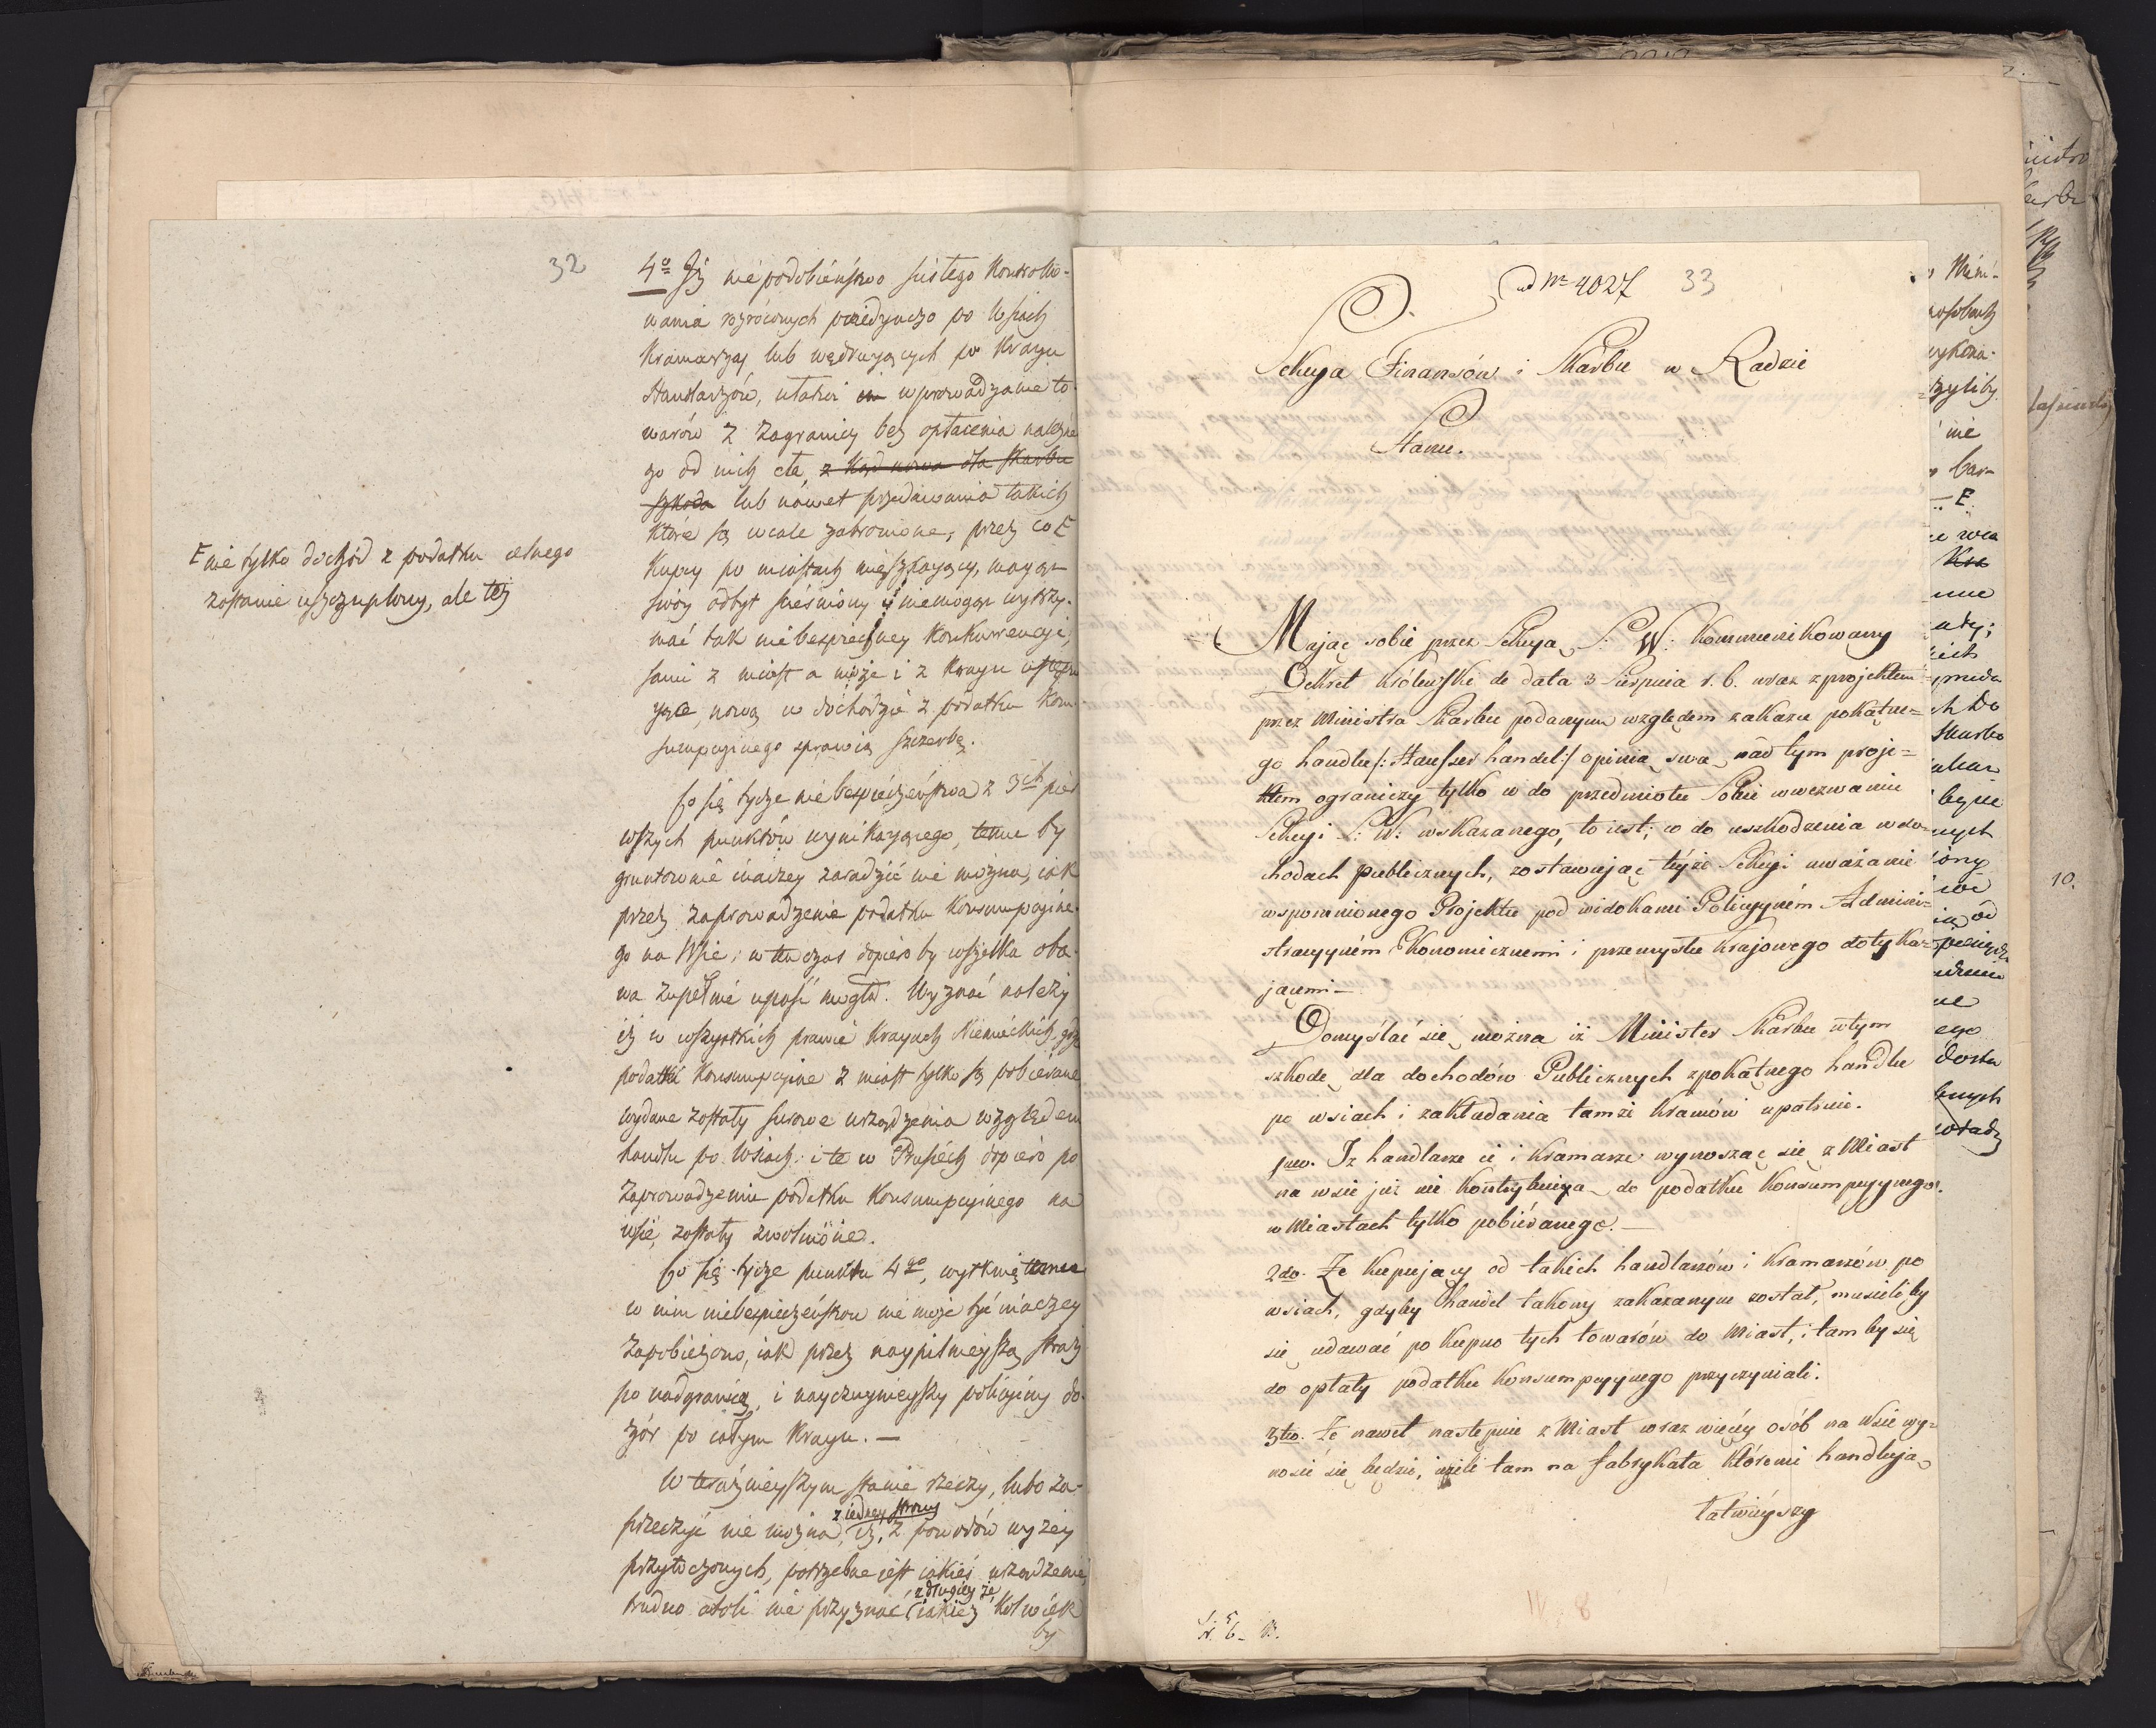 32
4o Iż niepodobieństwo ścisłego Kontrollo-
wania rozróconych poiedynczo po Wsiach
Kramarzy lub wędruiących po Kraiu
Handlarzów, ułatwi im wprowadzanie to-
warów z zagranicy bez opłacenia należne
go od nich cła, z kąd nowa dla skarbu
szkoda lub nawet przedawania takich
które są wcale zabronione, przez co F
Kupcy po miastach mięszkaiący, maiąc
swóy odbyt ścieśniony i niemogąc wytrzy-
mać tak niebezpieczney Konkurencyi,
sami z miast a może i z Kraiu ustępu
iąc, nową w dochodzie z podatku Kon
sumpcyinego sprawią szczerbę.
F nie tylko dochód z podatku celnego
zostanie uszczuplony, ale też
Co się tycze niebezpieczeństwa z 3ch pier
wszych punktów wynikaiącego, temu by
gruntownie inaczey zaradzić nie można, iak
przez zaprowadzenie podatku Konsumpcyine-
go na Wsie; w ten czas dopiero by wszelka oba-
wa zupełnie upaść mogła. Wyznać należy
iż w wszystkich prawie Kraiach Niemieckich, gdzie
podatki Konsumpcyine z miast tylko są pobierane
wydane zostały surowe urządzenia względem
handlu po Wsiach: i te w Prusiech dopiero po
zaprowadzeniu podatku Konsumpcyinego na
wsie, zostały zwolnione.
Co się tycze punktu 4go, wytknię temu
w nim niebezpieczeństwu nie może być inaczey
zapobieżono, iak przez naypilnieyszą straż
po nadgranicą, i nayczuynieyszy policyiny do-
zór po całym Kraiu. —
W teraźnieyszym stanie rzeczy, lubo za-
z iedney strony
przeczyć nie można, iż, z powodów wyżey
przytoczonych, potrzebne iest iakieś urządzenie,
z drugiey że
trudno atoli nie przyznać iakież kolwiek
by
ad Nr 4027 33
Sekcya Finansów i Skarbu w Radzie
Stanu.
Mając sobie przez Sekcyą S: W: kommunikowany
Dekret Królewski de data 3 Sierpnia r. b. wraz z projektem
przez Ministra Skarbu podanym względem zakazu pokątne=
go handlu /: Hausser handel :/ opinią swą nad tym proje=
ktem ograniczy tylko co do przedmiotu Sobie w wezwaniu
Sekcyi S: W: wskazanego, to iest; co do uszkodzenia w do=
chodach publicznych, zostawując teyże Sekcyi uważanie
wspomnionego Projektu pod widokami Policyyném Admini=
stracyyném Ekonomicznemi i przemysłu krajowego dotyka=
jącemi —
Domyślać się można iż Minister Skarbu w tym
szkodę dla dochodów Publicznych z pokątnego handlu
po wsiach i zakładania tamże kramów upatruie.
1mo. Iż handlarze ci i Kramarze wynosząc się z Miast
na wsie już nie kontrybuiją do podatku konsumpcyynego
w Miastach tylko pobiéranego. —
2do. Że kupujący od takich handlarzów i kramarzów po
wsiach, gdyby handel takowy zakazanym został, musieliby
się udawać po kupno tych towarów do Miast, i tam by się
do opłaty podatku konsumpcyynego przyczyniali.
3tio. Że nawet następnie z Miast coraz więcéy osób na Wsie wy=
nosić się będzie, ieżeli tam na fabrykata któremi handlują
łatwiéyszy
10.